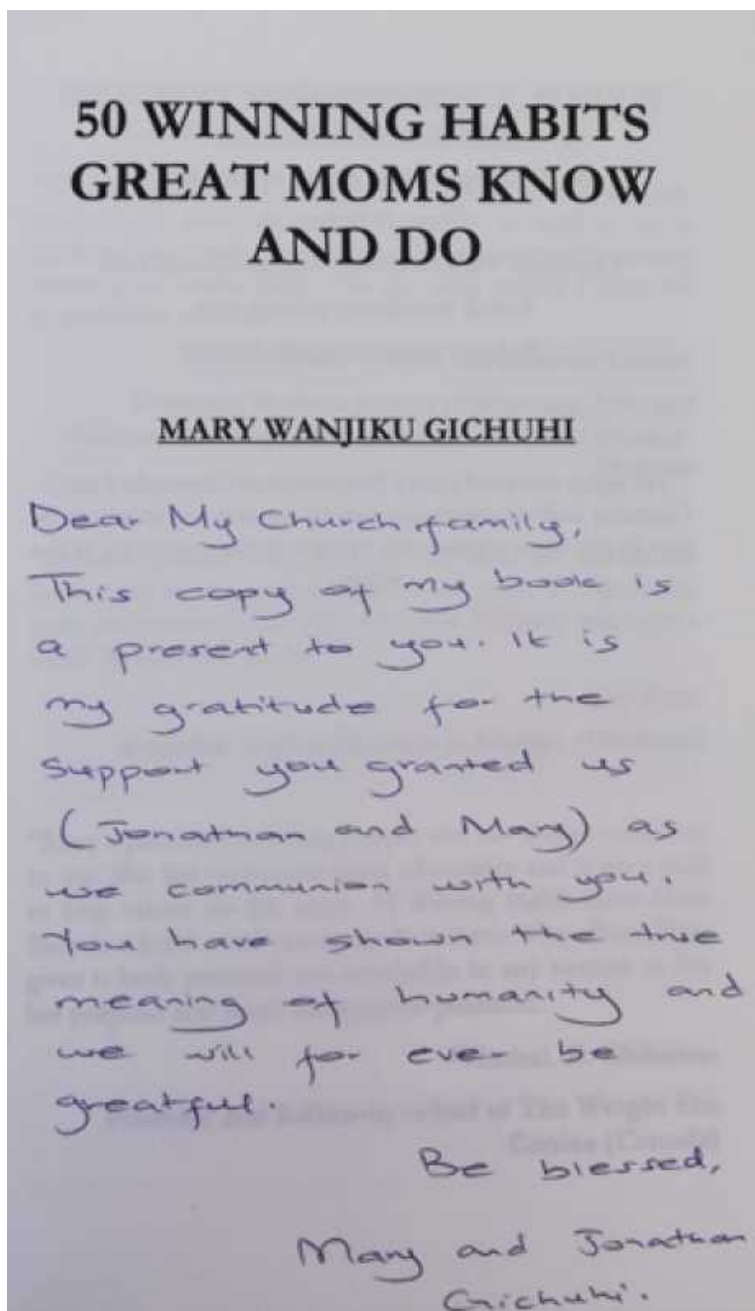 50 WINNING HABITS
GREAT MOMS KNOW
AND DO
MARY WANJIKU GICHUHI
Dear My Church family,
This copy of my book is
a present to you. It is
my gratitude for the
support you granted us
(Jonathan and Mary) as
we communion with you.
You have shown the true
meaning of humanity and
we will for ever be
greatful.
Be blessed,
Mary and Jonathan
Gichuhi.